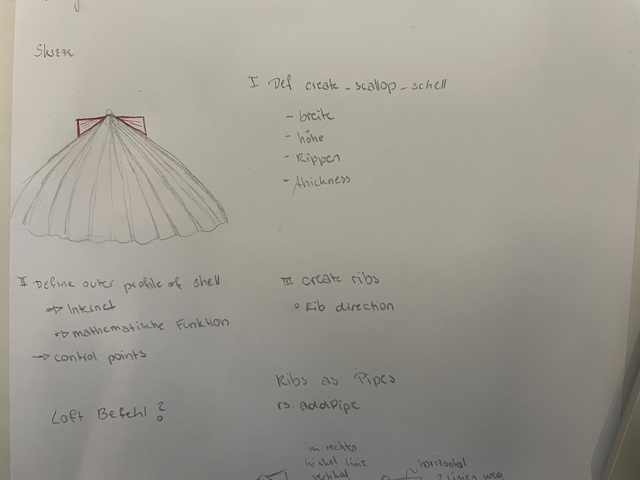 Skizze
I Def create_scallop_schell
- breite
- höhe
- Rippen
- thickness
II Define outer profile of shell
⇒ Internet
⇒ mathematische Funktion
→ control points
Loft Befehl?
III create ribs
° Rib direction
Ribs as Pipes
rs. addPipe
im rechten
winkel linie
vertikal
horizontal
2 linien weg